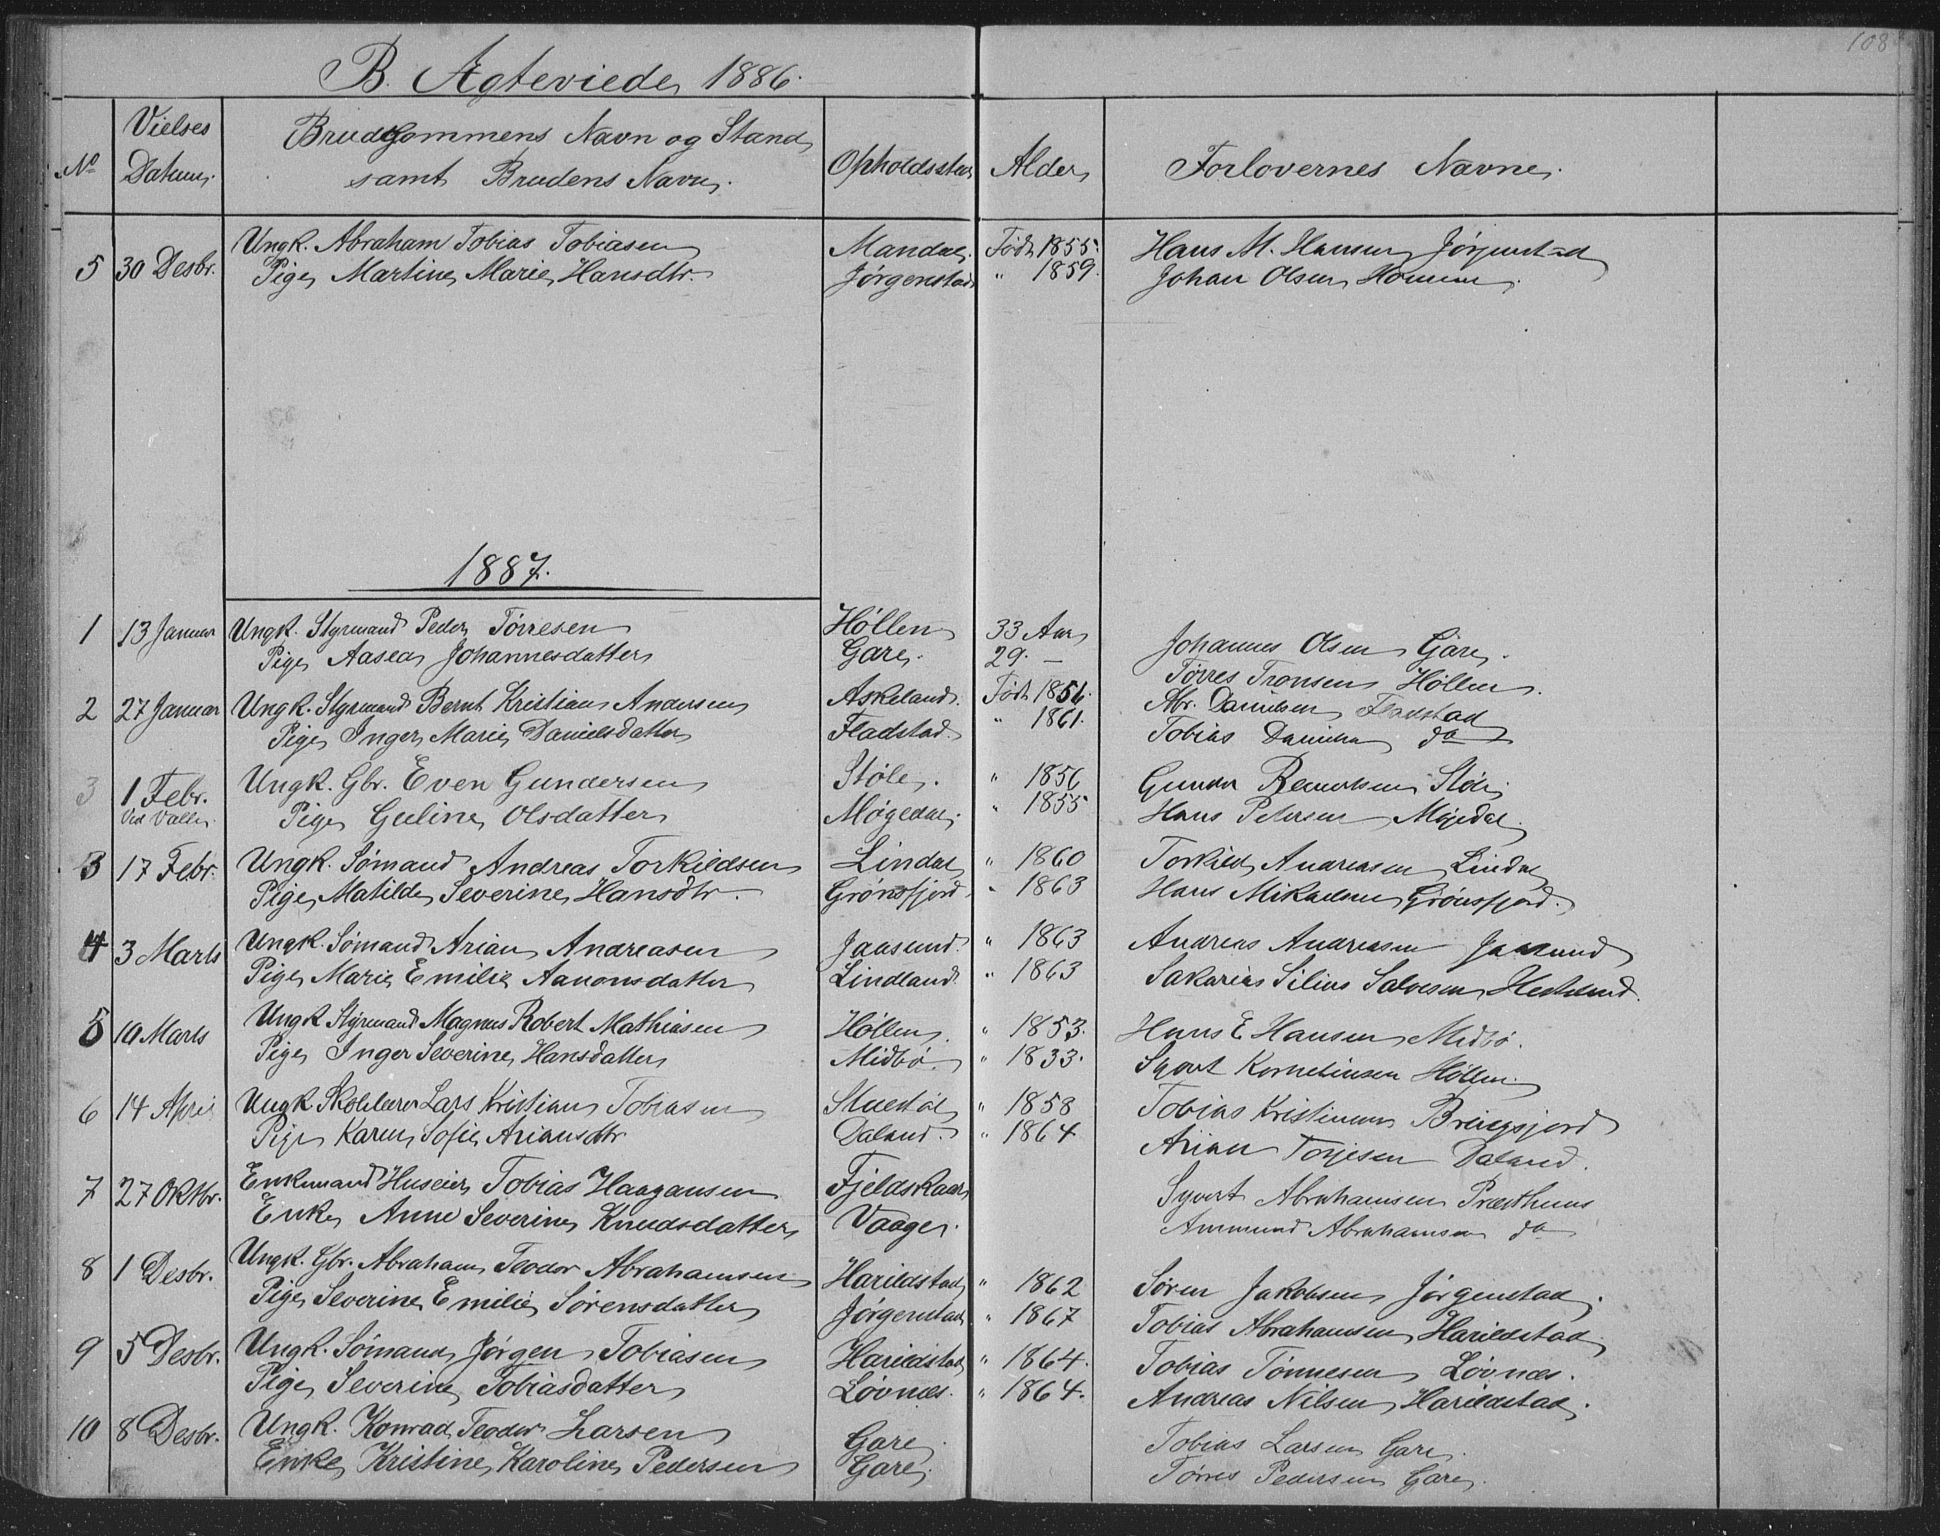 108
B. Ægteviede, 1886.
No
Vielses Datum.
Brudgommens Navn og Stand, samt Brudens Navn.
Opholdssted
Alder,
Forlovernes Navne,
5 30 Desbr. Ungk. Abraham Tobias Tobiasen Mandal. Født 1855. Hans M. Hansen Jørgenstad
Pige, Martine Marie, Hansdtr. Jørgenstad " 1859. Johan Olsen, Homme
1887.
1 13 Januar Ungk. Styrmand Peder Tørresen Høllen 33 Aar, Johannes Olsen Gare.
Pige, Aasea, Johannesdatter Gare. 29. — Tørres Tronsen Høllen.
2 27 Januar Ungk. Styrmand Bernt Kristian Andersen Askeland. Født 1856. Abr. Danielsen Fladstad
Pige, Inger Marie, Danielsdatter Fladstad. " 1861. Tobias Danielsen do
3 1 Febr. Ungk. Gbr. Even Gundersen Støle. " 1856 Gunder Støle
Ved Valle. Pige, Guline, Olsdatter Møgedal. " 1855 Hans Petersen Møgedal.
3 17 Febr. Ungk. Sømand Andreas Torkildsen Lindal " 1860 Torkild Andreasen Lindal
Pige, Matilde, Severine, Hansdtr. Grønsfjord " 1863 Hans Mikaelsen Grønsfjord.
4 3 Marts Ungk. Sømand Arian Andreasen Jaasund. " 1863 Andreas Andreasen Jaasund
Pige, Marie Emilie Aanonsdatter Lindland. " 1863 Sakarias Silius Salvesen
5 10 Marts Ungk. Styrmand Magnus Robert Mathiasen Høllen. " 1853. Hans E Hansen Midbø.
Pige, Inger Severine, Hansdatter Midbø. " 1833. Syvert Korneliusen Høllen.
6 14 April Ungk. Skolelærer Lars Kristian Tobiasen " 1858 Tobias Kristiansen
Pige, Karen Sofie, Ariansdtr Daland. " 1864 Arian Torjesen Daland.
7 27 Oktbr. Enkemand Huseier, Tobias Haagansen Fjeldskaar Syvert Abrahamsen Præsthuus
Enke, Anne Severine, Knudsdatter Vaage. Ammund Abrahamsen do
8 1 Desbr. Ungk. Gbr. Abraham Teodor Abrahamsen Harildstad " 1862 Søren Jakobsen Jørgenstad.
Pige, Severine Emilie, Sørensdatter Jørgenstad " 1867 Tobias Abrahamsen, Harildstad.
9 5 Desbr. Ungk. Sømand, Jørgen Tobiasen Harildstad " 1864. Tobias Tønnesen Løvnæs.
Pige, Severine, Tobiasdatter Løvnæs. " 1864. Andreas Nilsen, Harildstad.
10 8 Desbr. Ungk. Konrad Teodor Larsen Gare Tobias Larsen Gare.
Enke, Kristine, Karoline, Pedersen Gare. Tørres Pedersen Gare.